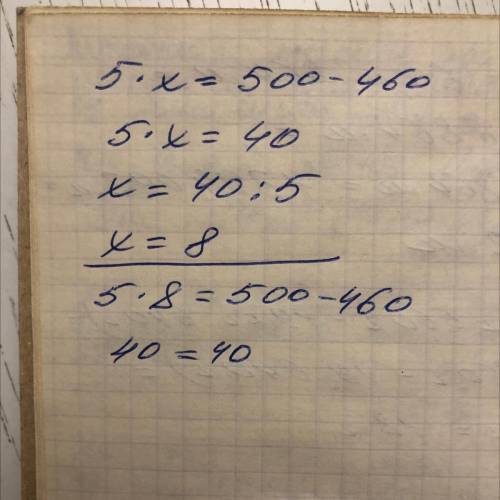 5·x = 500 - 460
5·x = 40
x = 40 : 5
x = 8
5·8 = 500 - 460
40 = 40